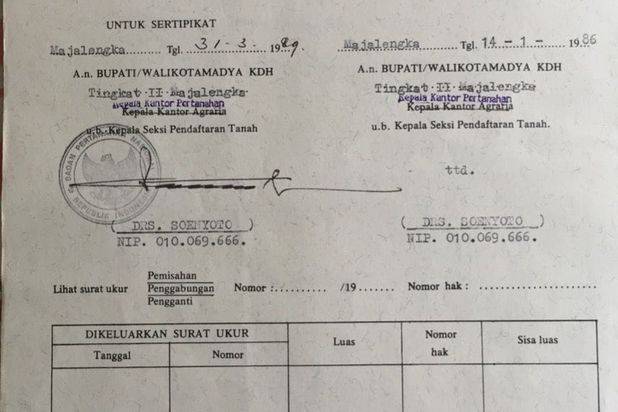 UNTUK SERTIPIKAT
Majalengka.......... Tgl. 31-3- 1989.
A.n. BUPATI/WALIKOTAMADYA KDH
Tingkat II Majalengka
Kepala Kantor Pertanahan
Kepala Kantor Agraria
u.b. Kepala Seksi Pendaftaran Tanah
BADAN PERTANAHAN
REPUBLIK INDONESIA
( DRS. SOENYOTO )
NIP. 010.069.666.
Majalengka.......... Tgl. 14 - 1 - 1986
A.n. BUPATI/WALIKOTAMADYA KDH
Tingkat II Majalengka
Kepala Kantor Pertanahan
Kepala Kantor Agraria
u.b. Kepala Seksi Pendaftaran Tanah.
ttd.
( DRS. SOENYOTO )
NIP. 010.069.666.
Pemisahan
Lihat surat ukur Penggabungan Nomor :.......... /19 ....... Nomor hak : ..........................
Pengganti
DIKELUARKAN SURAT UKUR Luas Nomor hak Sisa luas
Tanggal Nomor